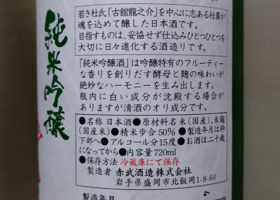 純米吟醸
若き杜氏「古舘龍之介」を中心に志ある社員が
魂を込めて醸した日本酒です。
目指すものは、妥協せず仕込みひとつひとつを
大切に日々進化する酒造りです。
「純米吟醸酒」は吟醸特有のフルーティー
な香りを創りだす酵母と麹の味わいが
絶妙なハーモニーを生み出します。
瓶内に白い成分が沈殿する場合が
ありますが清酒のオリ成分です。
●名称 日本酒●原材料名 米(国産)、米麹
(国産米)●精米歩合50%●製造年月は枠
下部へ●アルコール分15度●お酒は二十歳
になってから●内容量720ml
●保存方法 冷蔵庫にて保存
製造者 赤武酒造株式会社
岩手県盛岡市北飯岡1-8-60
製造年月